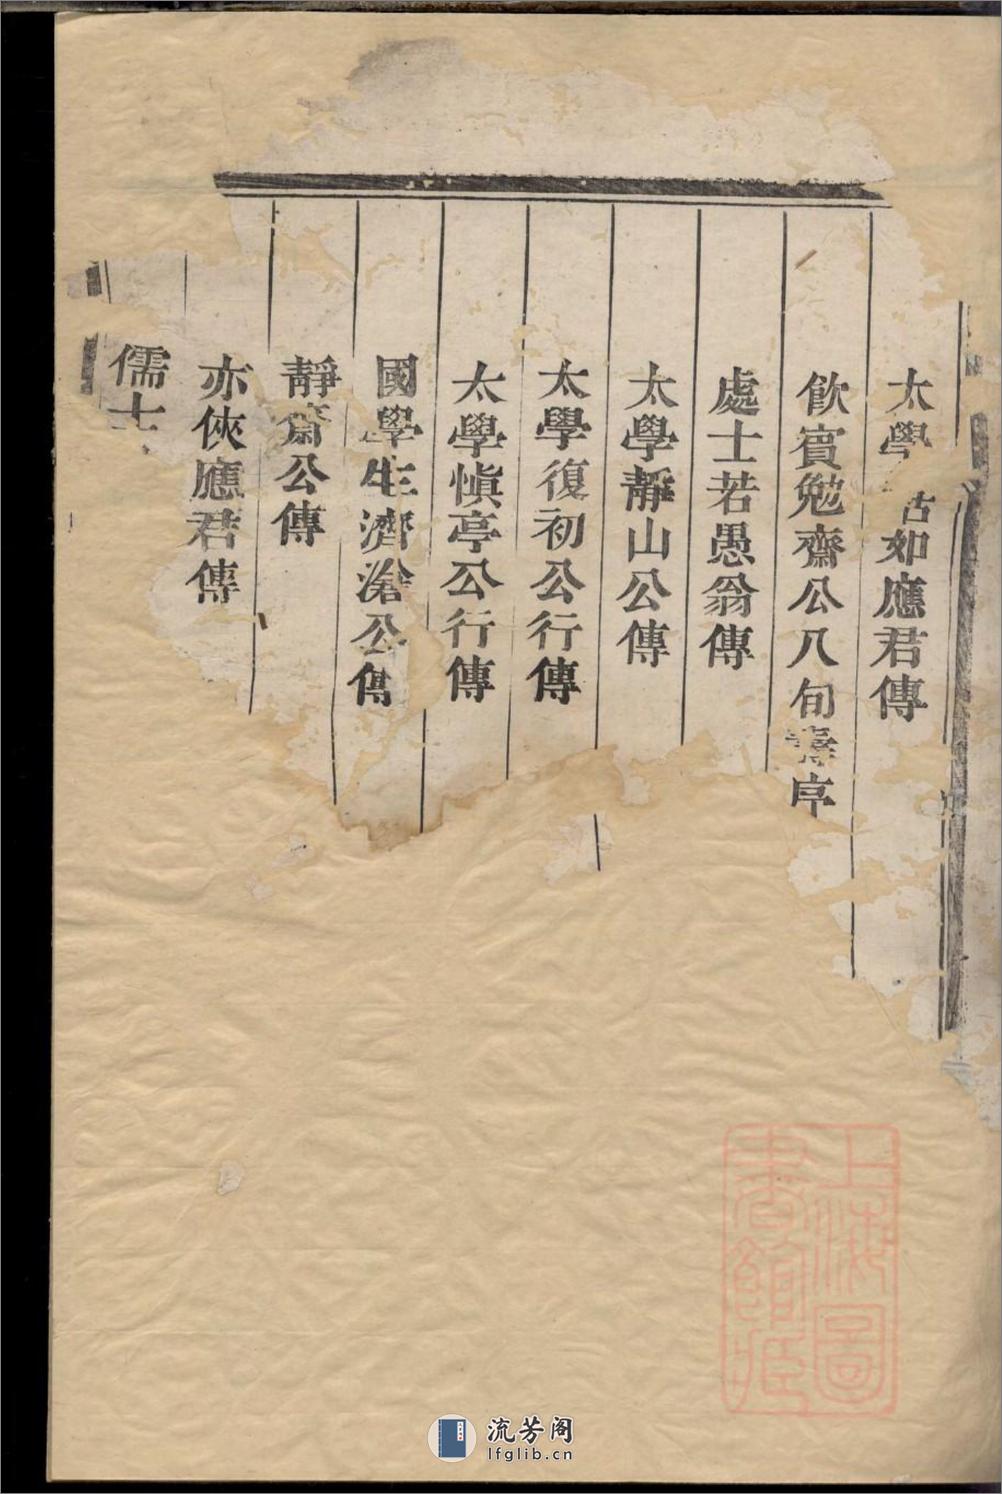 太學 如應君傳
飲賓勉齋公八旬壽序
處士若愚翁傳
太學靜山公傳
太學復初公行傳
太學慎亭公行傳
國學生濟滄公傳
靜齋公傳
亦俠應君傳
儒士
上海圖書館藏
流芳阁
lfglib.cn